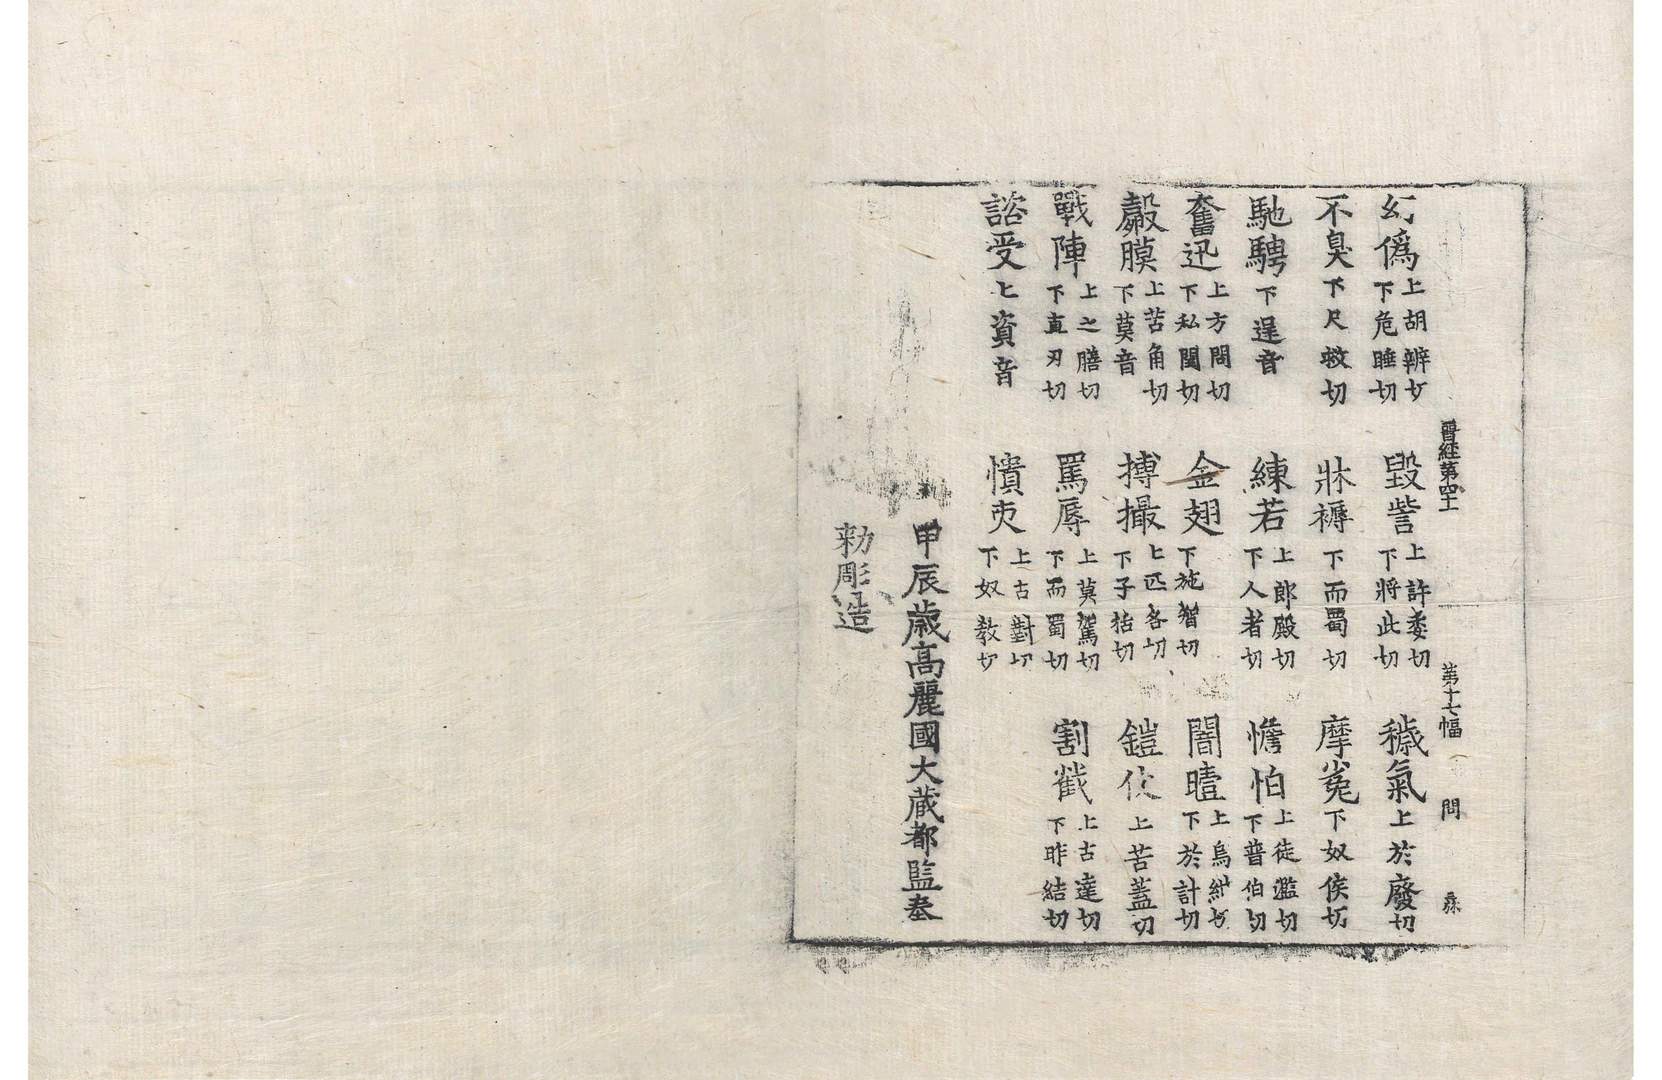 晉經第四十 第十七幅 問
幻僞上胡辦切下危睡切 毀訾上許委切下將此切 穢氣上於廢切
不臭下尺救切 牀褥下而蜀切 摩㝹下奴侯切
馳騁下逞音 練若上郎殿切下人者切 憺怕上徒濫切下普伯切
奮迅上方問切下私閏切 金翅下施智切 闇曀上烏紺切下於計切
㲉膜上苦角切下莫音 搏撮上匹各切下子括切 鎧仗上苦蓋切
戰陣上之膳切下直刃切 罵辱上莫駕切下而蜀切 割截上古達切下昨結切
諮受上資音 憒吏上古對切下奴教切
甲辰歲高麗國大藏都監奉
勑彫造